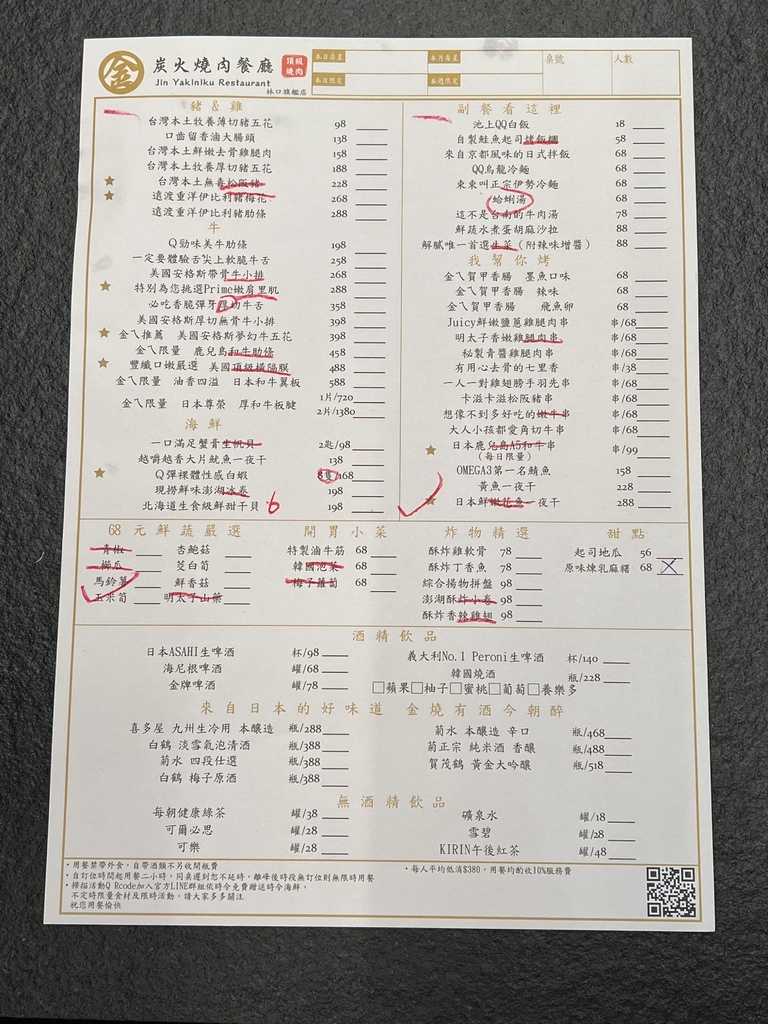 金 炭火燒肉餐廳 頂級燒肉
Jin Yakiniku Restaurant
林口旗艦店
本日壽星 本月壽星 桌號 人數
本日限定 本週限定
豬&雞
台灣本土牧養薄切豬五花 98
口齒留香滷大腸頭 138
台灣本土鮮嫩去骨雞腿肉 158
台灣本土牧養厚切豬五花 188
台灣本土無毒松阪豬 228
遠渡重洋伊比利豬梅花 268
遠渡重洋伊比利豬肋條 288
牛
Q勁味美牛肋條 198
一定要體驗舌尖上軟脆牛舌 258
美國安格斯帶骨牛小排 268
特別為您挑選Prime嫩肩里肌 288
必吃香脆彈牙厚切牛舌 358
美國安格斯厚切無骨牛小排 398
金八推薦 美國安格斯夢幻牛五花 398
金八限量 鹿兒島和牛肋條 458
豐纖口嫩嚴選 美國頂級橫隔膜 488
金八限量 油香四溢 日本和牛翼板 588
金八限量 日本尊榮 厚和牛板腱 1片/720
2片/1380
海鮮
一口滿足蟹膏生帆貝 2匙/98
越嚼越香大片魷魚一夜干 138
Q彈裸體性感白蝦 8隻/168
現撈鮮味澎湖冰卷 198
北海道生食級鮮甜干貝 6 198
副餐看這裡
池上QQ白飯 18
自製鮭魚起司烤飯糰 58
來自京都風味的日式拌飯 68
QQ烏龍冷麵 68
東東叫正宗伊勢冷麵 68
蛤蜊湯 68
這不是台南的牛肉湯 78
鮮蔬水煮蛋胡麻沙拉 88
解膩唯一首選生菜(附辣味增醬) 88
我幫你烤
金八賀甲香腸 墨魚口味 68
金八賀甲香腸 辣味 68
金八賀甲香腸 飛魚卵 68
Juicy鮮嫩鹽蔥雞腿肉串 串/68
明太子香嫩雞腿肉串 串/68
秘製青醬雞腿肉串 串/68
有用心去骨的七里香 串/38
一人一對雞翅膀手羽先串 串/68
卡滋卡滋松阪豬串 串/68
想像不到多好吃的嫩牛串 串/68
大人小孩都愛角切牛串 串/68
日本鹿兒島A5和牛串 串/99
(每日限量)
OMEGA3第一名鯖魚 158
黃魚一夜干 228
日本鮮嫩花魚一夜干 288
68 元鮮蔬嚴選
青椒 杏鮑菇
櫛瓜 茭白筍
馬鈴薯 鮮香菇
玉米筍 明太子山藥
開胃小菜
特製滷牛筋 68
韓國泡菜 68
梅子蘿蔔 68
炸物精選
酥炸雞軟骨 78
酥炸丁香魚 78
綜合揚物拼盤 98
澎湖酥炸小卷 98
酥炸香辣雞翅 98
甜點
起司地瓜 56
原味煉乳麻糬 68 X
酒精飲品
日本ASAHI生啤酒 杯/98
海尼根啤酒 罐/68
金牌啤酒 罐/78
義大利No.1 Peroni生啤酒 杯/140
韓國燒酒 瓶/228
□蘋果□柚子□蜜桃□葡萄□養樂多
來自日本的好味道 金燒有酒今朝醉
喜多屋 九州生冷用 本釀造 瓶/288
白鶴 淡雪氣泡清酒 瓶/388
菊水 四段仕選 瓶/388
白鶴 梅子原酒 瓶/388
菊水 本釀造 辛口 瓶/468
菊正宗 純米酒 香釀 瓶/488
賀茂鶴 黃金大吟釀 瓶/518
無酒精飲品
每朝健康綠茶 罐/38
可爾必思 罐/28
可樂 罐/28
礦泉水 罐/18
雪碧 罐/28
KIRIN午後紅茶 罐/48
・用餐禁帶外食,自帶酒類不另收開瓶費
・自訂位時間起用餐二小時,同桌遲到恕不延時,離峰後時段無訂位則無限時用餐
・掃描活動Q Rcode加入官方LINE群組依時令免費贈送時令海鮮,
不定時限量食材及限時活動,請大家多多關注
祝您用餐愉快
・每人平均低消$380,用餐均酌收10%服務費